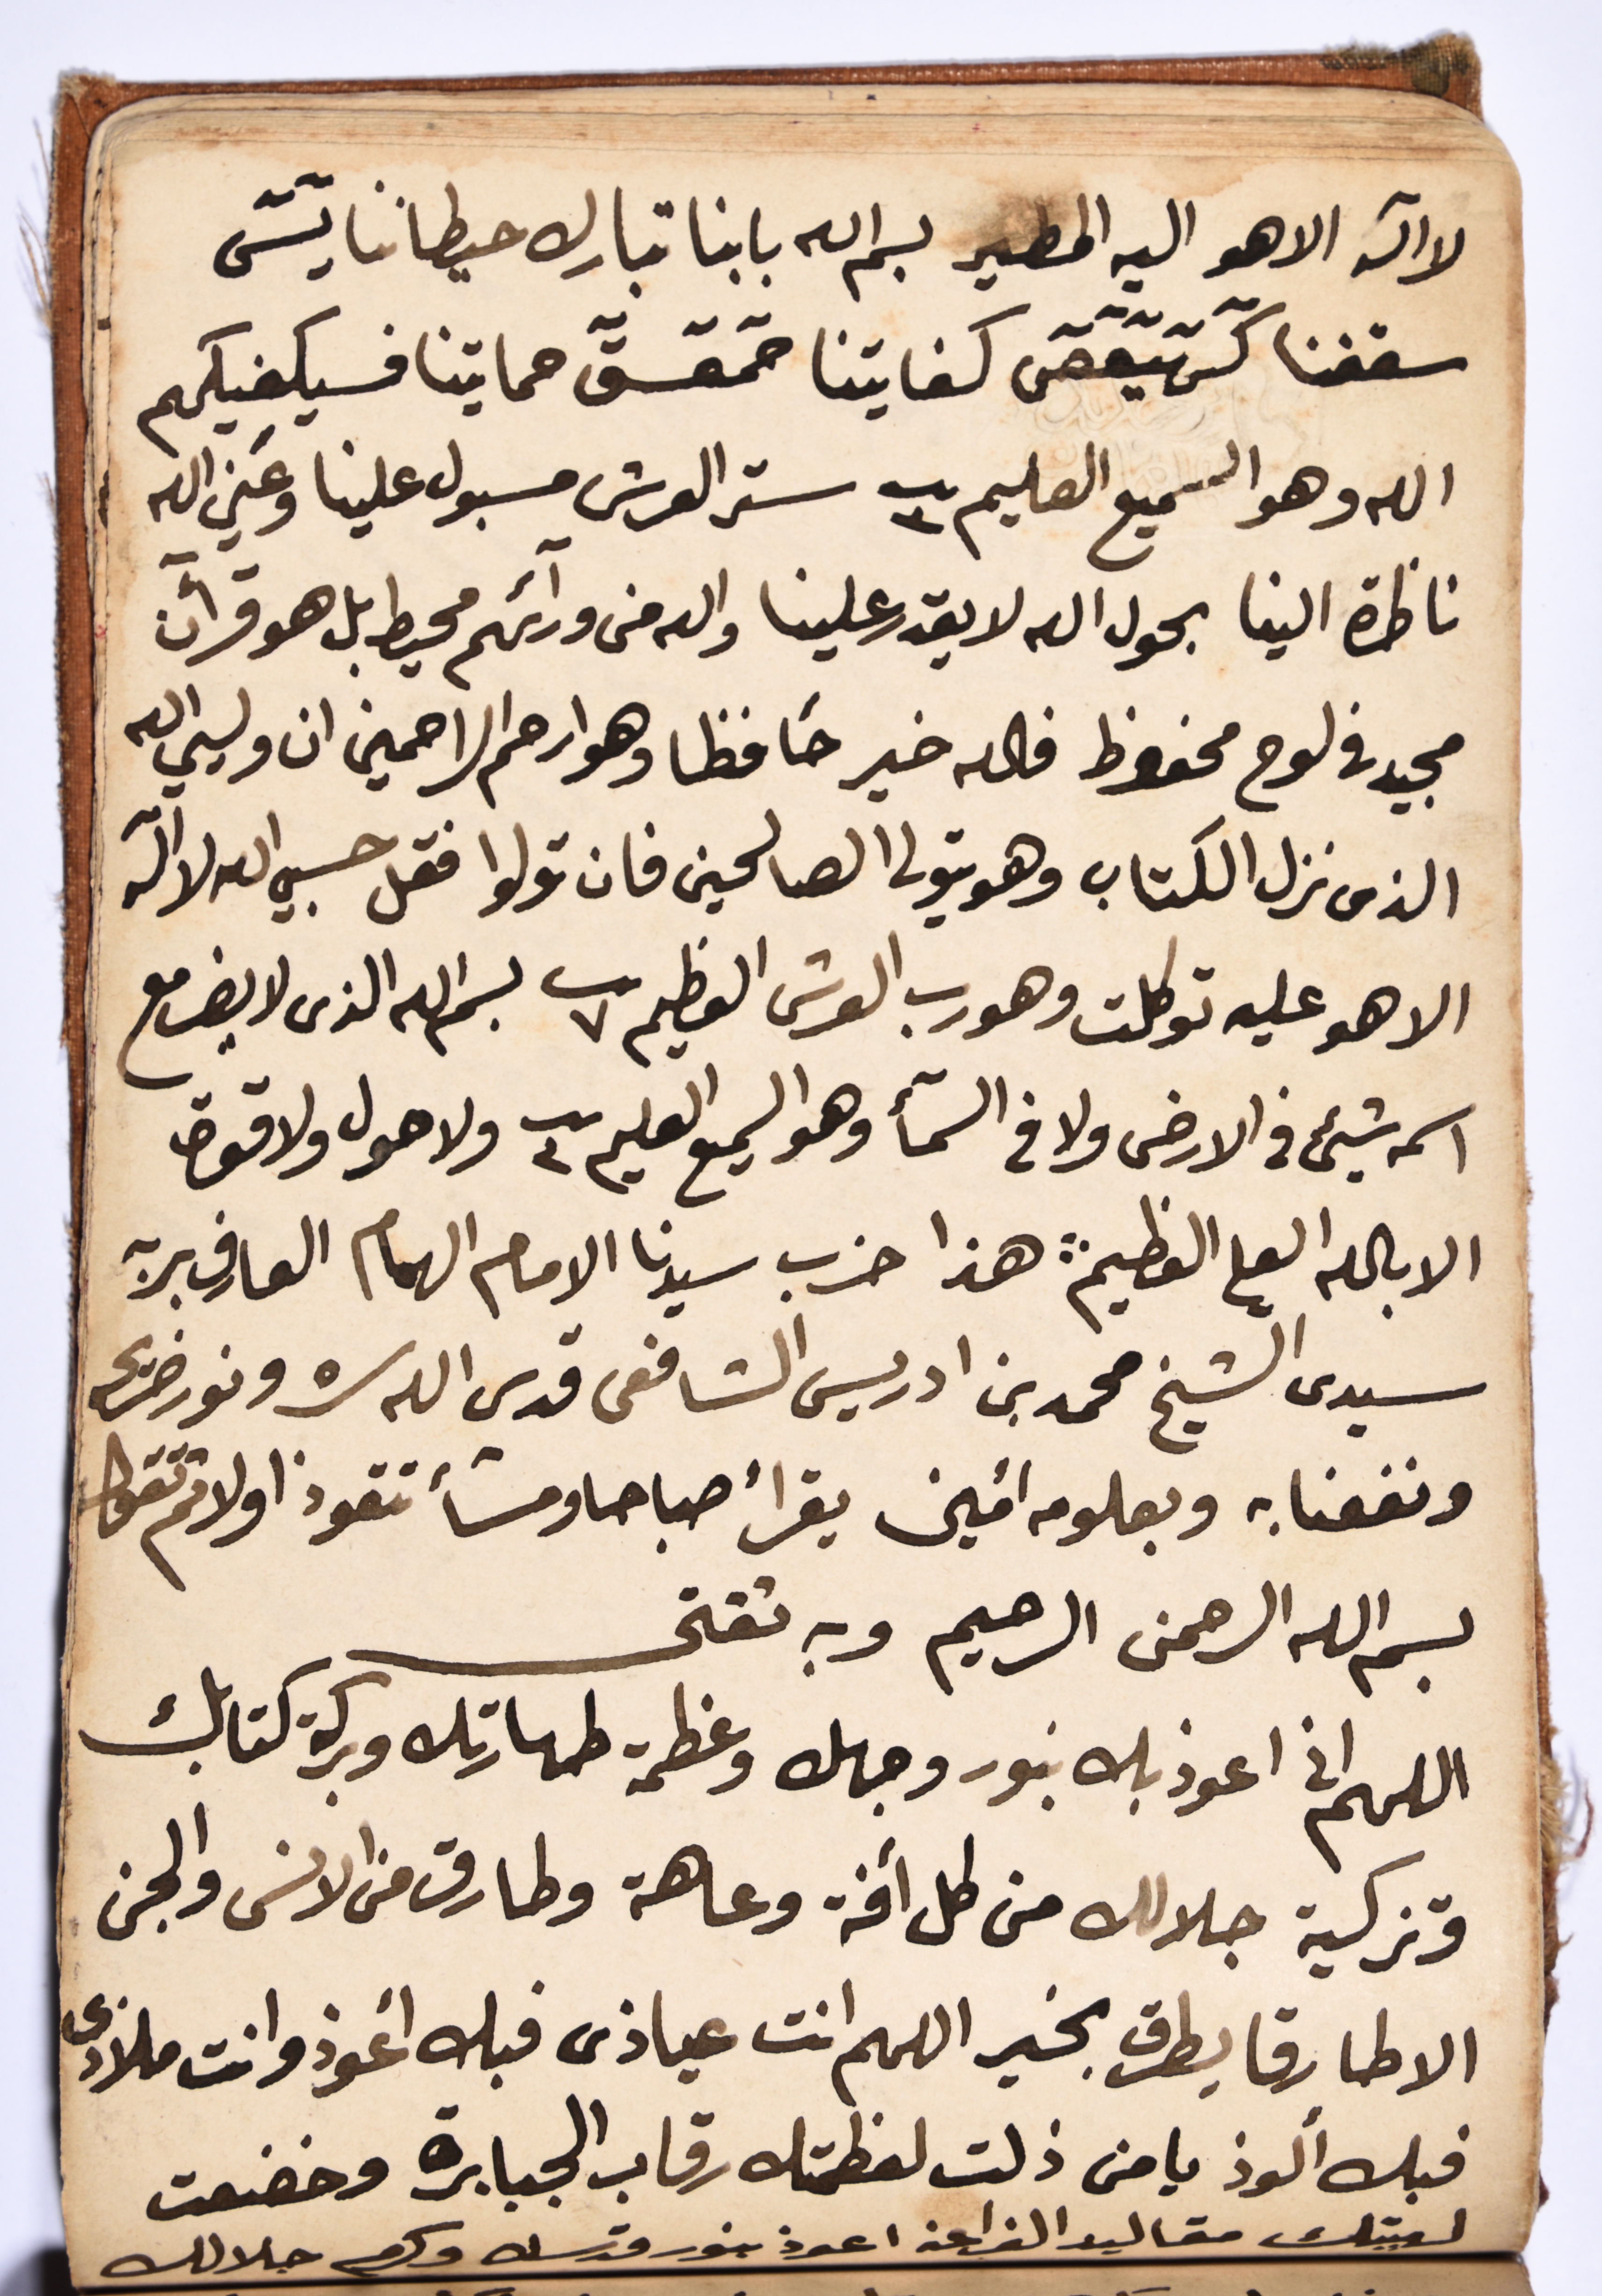 لا اله الا هو اليه المصير بسم الله بابنا تبارك حيطاننا يٓسٓ
سقفنا كٓهٰيٰعٓصٓ كفايتنا حٓمٓعٓسٓقٓ حمايتنا فسيكفيكهم
الله وهو السميع العليم ٣ ستر العرش مسبول علينا وعين الله
ناظرة الينا بحول الله لا يقدر علينا والله من ورآئهم محيط بل هو قرأن
مجيد في لوح محفوظ فالله خير حافظا وهو ارحم الراحمين ان وليي الله
الذى نزل الكتاب وهو يتولى الصالحين فان تولوا فقل حسبي الله لا اله
الا هو عليه توكلت وهو رب العرش العظيم ٧ بسم الله الذى لا يضر مع
اسمه شيئ في الارض ولا في السمآء وهو السميع العليم ٣ ولا حول ولا قوة
الا بالله العلي العظيم هذا حزب سيدنا الامام الهمام العارف بربه
سيدى الشيخ محمد بن ادريس الشافعى قدس الله سره ونور ضريحه
ونفعنا به وبعلومه أمين يقرأ صباحا ومسأ تتعوذ اولا ثم تقول
بسم الله الرحمن الرحيم وبه ثقتى
اللهم اني اعوذ بك بنور وجهك وعظمة طهارتك وبركة كتابك
وتزكية جلالك من كل أفة وعاهة وطارق من الانس والجن
الا طارقا يطرق بخير اللهم انت عياذى فبك أعوذ وانت ملاذى
فبك ألوذ يا من ذلت لعظمتك رقاب الجبابرة وخضعت
لهيبتك مقاليد الفراعنه اعوذ بنور قدسك وكرم جلالك